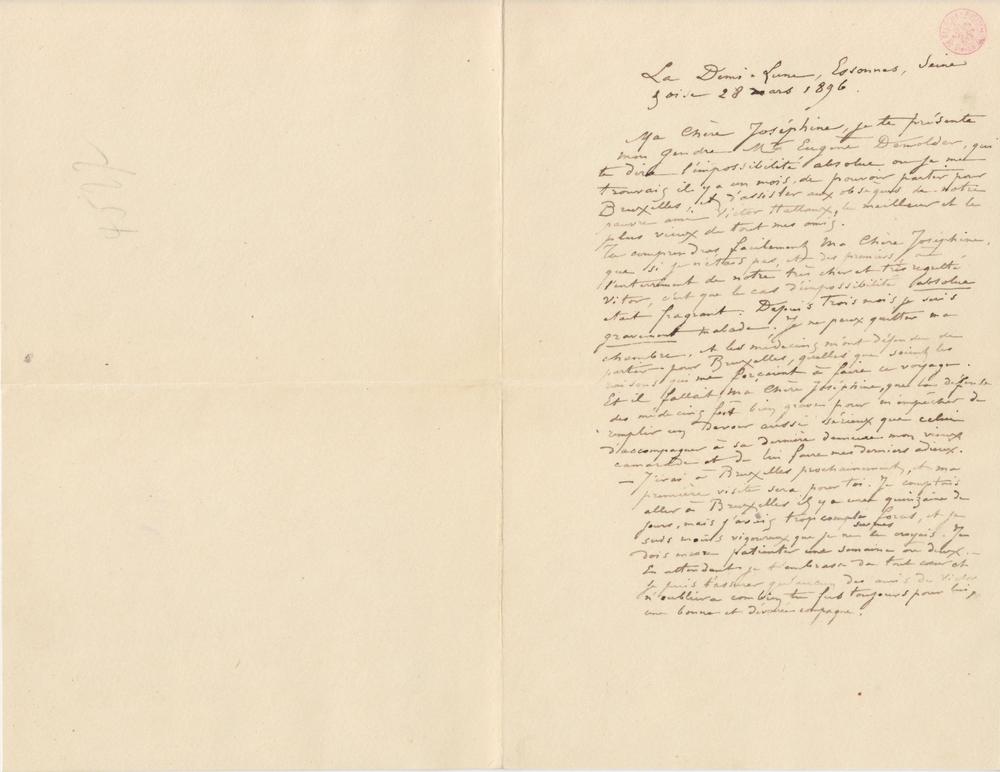 La Demi-Lune, Essonnes, Seine
& oise 28 mars 1896.
Ma Chère Joséphine, je te présente
mon gendre Mr Eugène Demolder, qui
te dira l'impossibilité absolue ou je me
trouvais il y a un mois, de pouvoir partir pour
Bruxelles et d'assister aux obsèques de notre
pauvre ami Victor Hallaux, le meilleur et le
plus vieux de tout mes amis.
Tu comprendras facilement Ma Chère Joséphine,
que si je n'étais pas, un des premiers, à
l'enterrement de notre très cher et très regretté
Victor, c'est que le cas d'impossibilité absolue
était flagrant. Depuis trois mois je suis
gravement malade. Je ne peux quitter ma
chambre, et les médecins m'ont défendu de
partir pour Bruxelles, quelles que soient les
raisons qui me forçaient à faire ce voyage.
Et il fallait Ma Chère Joséphine, que la défense
des médecins fût bien grave pour m'empêcher de
remplir un devoir aussi sérieux que celui
d'accompagner à sa dernière demeure mon vieux
camarade et de lui faire mes derniers adieux.
— J'irai à Bruxelles prochainement, et ma
première visite sera pour toi. Je comptais
aller à Bruxelles il y a une quinzaine de
jours, mais j'avais trop compté sur mes forces, et je
suis moins vigoureux que je ne le croyais. Je
dois encore patienter une semaine ou deux. —
En attendant je t'embrasse de tout cœur et
je puis t'assurer qu'aucun des amis de Victor
n'oubliera combien tu fus toujours pour lui,
une bonne et dévouée compagne.